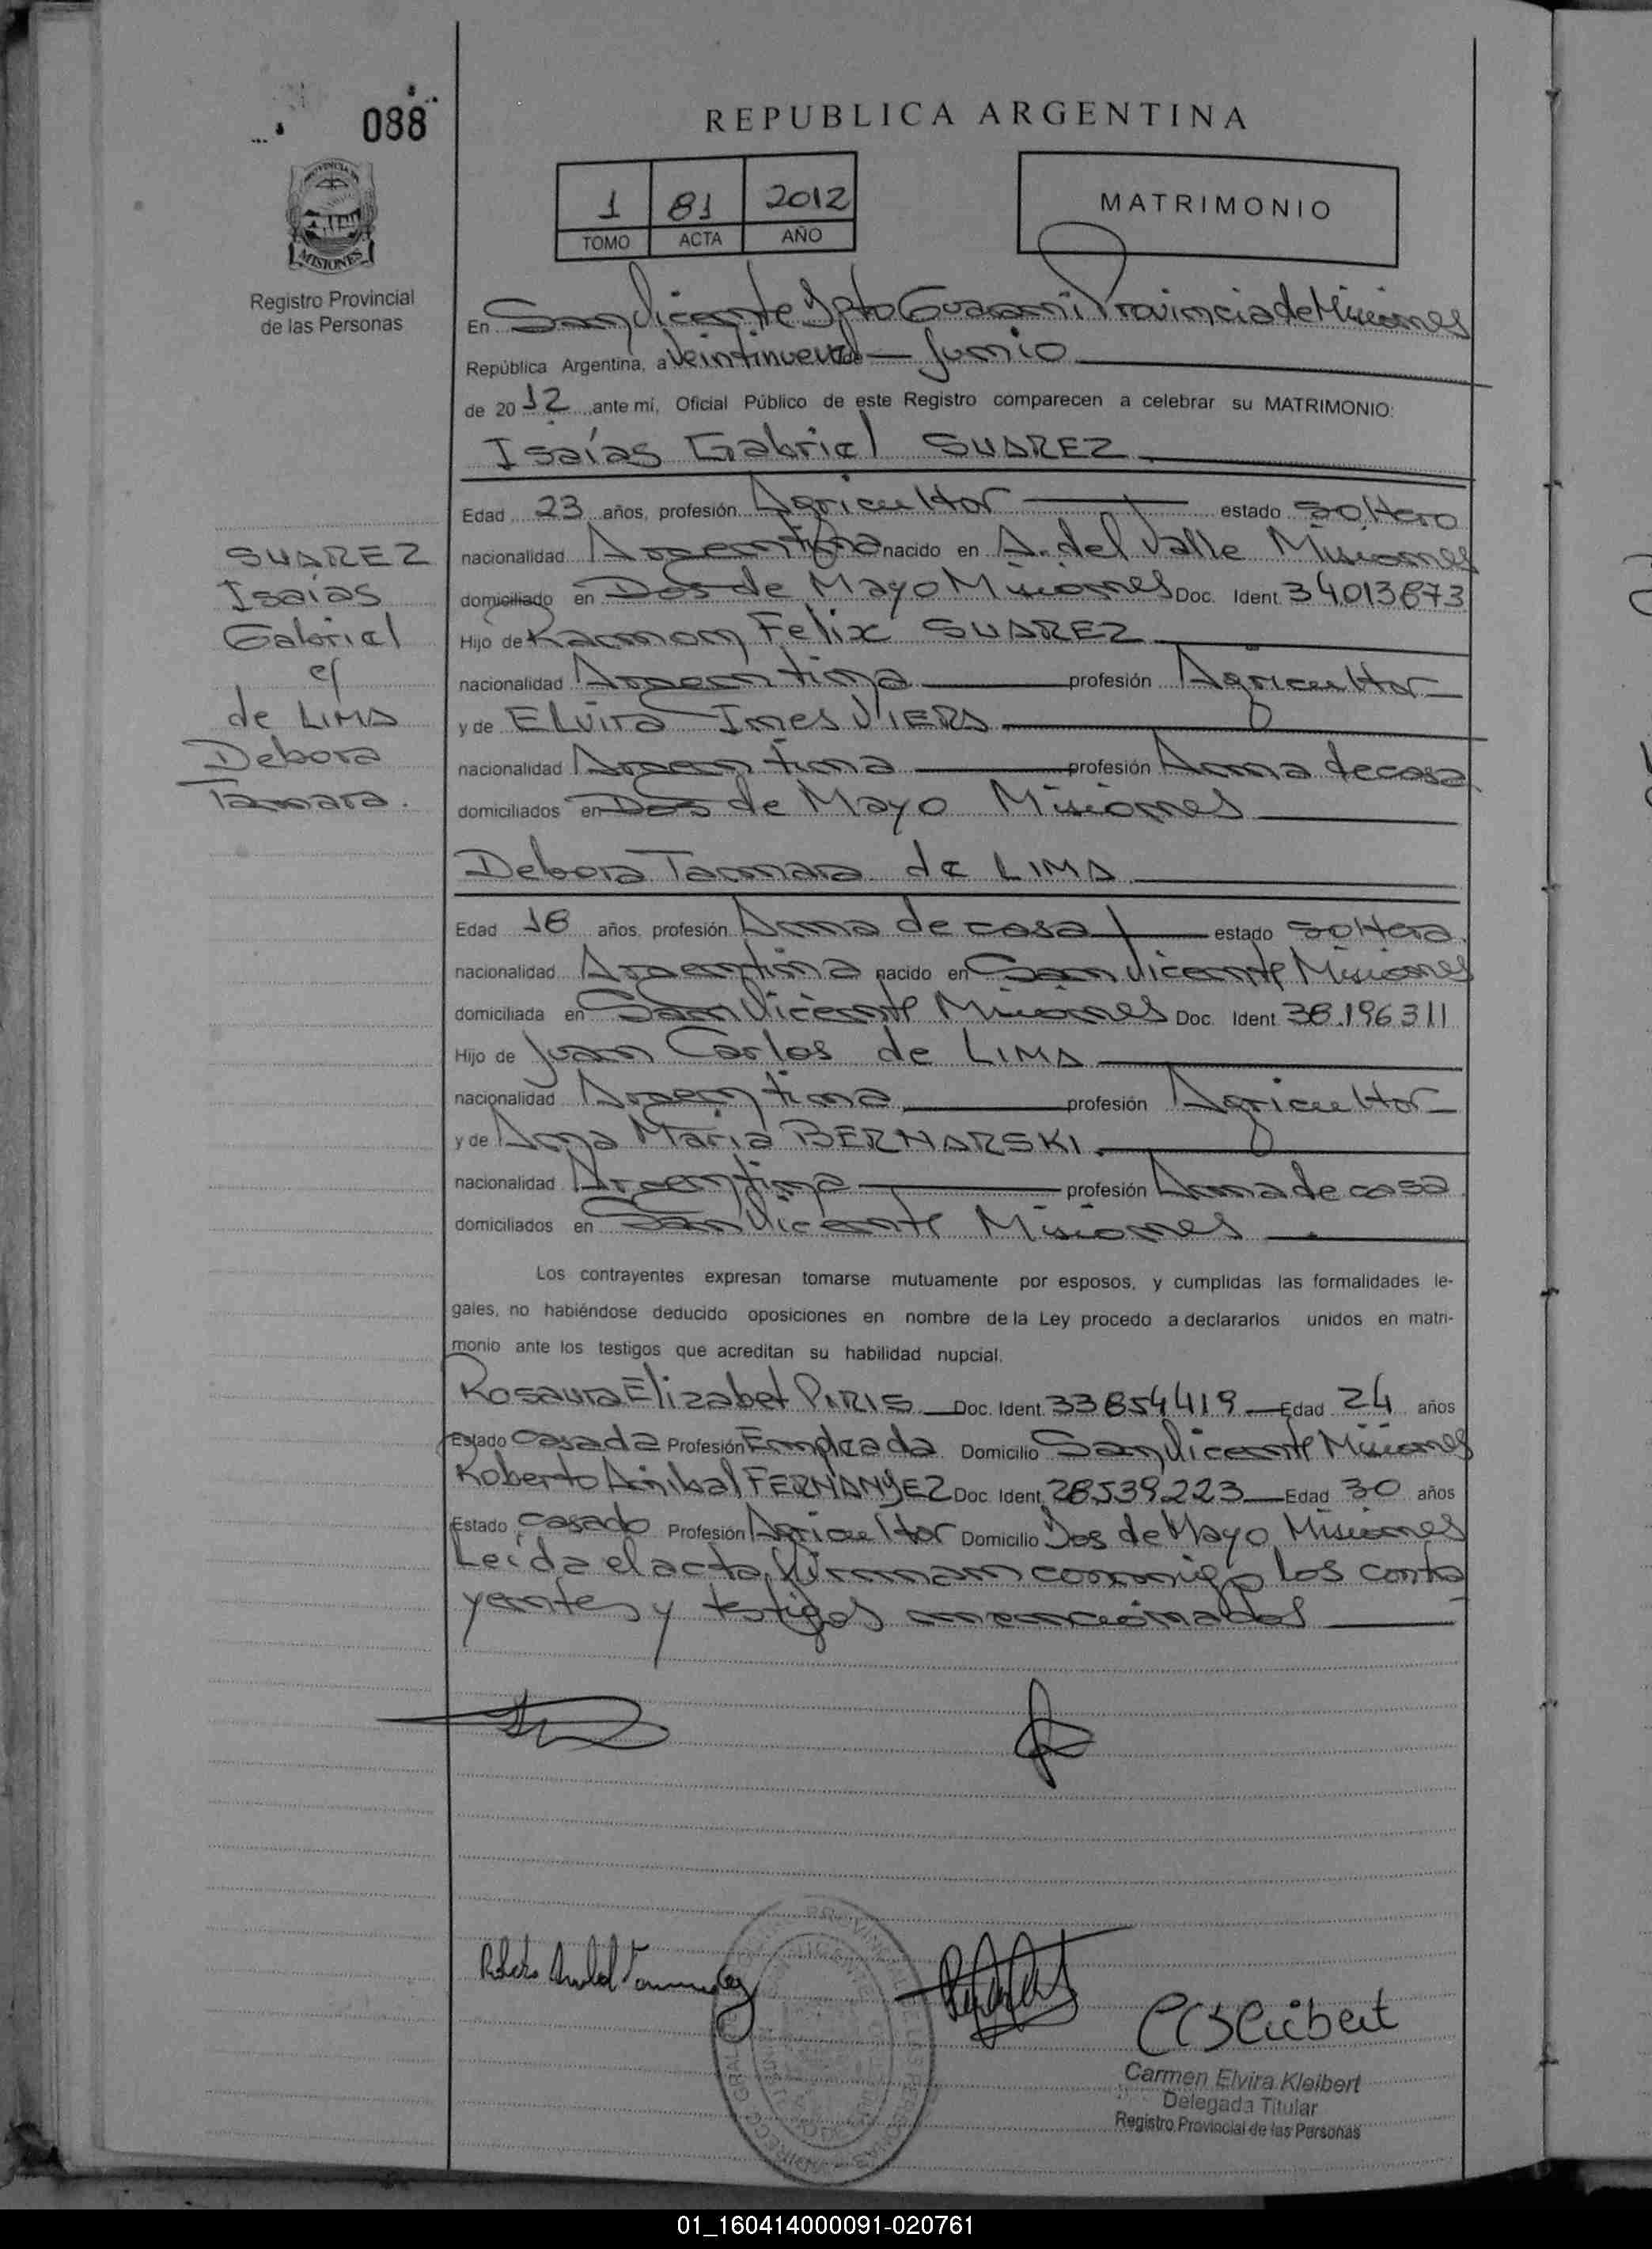 088
REPUBLICA ARGENTINA
1 81 2012
TOMO ACTA AÑO
MATRIMONIO
PROVINCIA DE
MISIONES
Registro Provincial
de las Personas
En San Vicente Dpto Guarani Provincia de Misiones
República Argentina, a Veintinueve de — Junio
de 2012 ante mí, Oficial Público de este Registro comparecen a celebrar su MATRIMONIO:
Isaías Gabriel SUAREZ
Edad 23 años, profesión Agricultor estado soltero
nacionalidad Argentina nacido en A. del Valle Misiones
domiciliado en Dos de Mayo Misiones Doc. Ident. 34013873
Hijo de Ramon Felix SUAREZ
nacionalidad Argentina profesión Agricultor
y de Elvira Ines VIERA
nacionalidad Argentina profesión Ama de casa
domiciliados en Dos de Mayo Misiones
SUAREZ
Isaías
Gabriel
c/
de LIMA
Debora
Tamara.
Debora Tamara de LIMA
Edad 18 años, profesión Ama de casa estado soltera
nacionalidad Argentina nacido en San Vicente Misiones
domiciliada en San Vicente Misiones Doc. Ident. 38.196311
Hijo de Juan Carlos de LIMA
nacionalidad Argentina profesión Agricultor
y de Ana Maria BERNARSKI
nacionalidad Argentina profesión Ama de casa
domiciliados en San Vicente Misiones
Los contrayentes expresan tomarse mutuamente por esposos, y cumplidas las formalidades le-
gales, no habiéndose deducido oposiciones en nombre de la Ley procedo a declararlos unidos en matri-
monio ante los testigos que acreditan su habilidad nupcial.
Rosaura Elizabet PIRIS Doc. Ident. 33854419 Edad 24 años
Estado Casada Profesión Empleada Domicilio San Vicente Misiones
Roberto Anibal FERNANDEZ Doc. Ident. 28539.223 Edad 30 años
Estado Casado Profesión Agricultor Domicilio Dos de Mayo Misiones
Leída el acta, firman conmigo los contra
yentes y testigos mencionados
Carmen Elvira Kleibert
Delegada Titular
Registro Provincial de las Personas
01_160414000091-020761